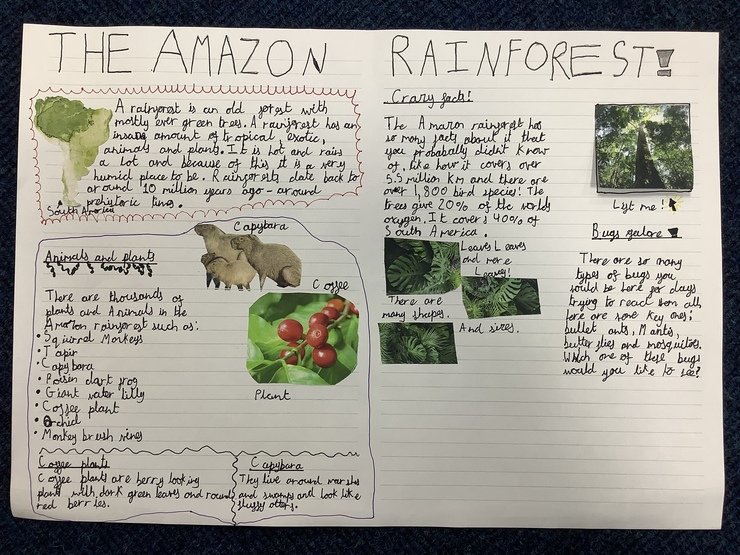 THE AMAZON RAINFOREST!
A rainforest is an old forest with
mostly ever green trees. A rainforest has an
insane amount of tropical, exotic,
animals and plants. It is hot and rains
a lot and because of this it is a very
humid place to be. Rainforests date back to
around 10 million years ago - around
prehistoric times.
South America
Capybara
Animals and plants
Coffee
There are thousands of
plants and Animals in the
Amazon rainforest such as:
• Squirral Monkeys
• Tapir
• Capybara
• Poison dart frog
• Giant water lilly
• Coffee plant
• Orchid
• Monkey brush vines
Plant
Coffee plants
Coffee plants are berry looking
plant with dark green leaves and round
red berries.
Capybara
They live around marshs
and swamps and look like
fluffy otters.
Crazy facts!
The Amazon rainforest has
so many facts about it that
you probabally didn't know
of, like how it covers over
5.5 million km and there are
over 1,800 bird species! The
trees give 20% of the worlds
oxygen. It covers 40% of
South America.
Leaves Leaves
and more
Leaves!
There are
many shapes.
And sizes.
Lift me!
Bugs galore!
There are so many
types of bugs you
would be here for days
trying to read them all,
here are some key ones;
bullet ants, Mants,
butterflies and mosquitos.
Which one of these bugs
would you like to see?